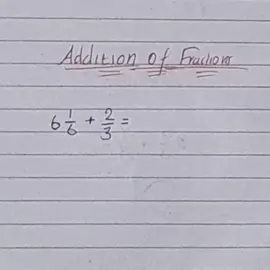 Addition of Fractions
6 1/6 + 2/3 =